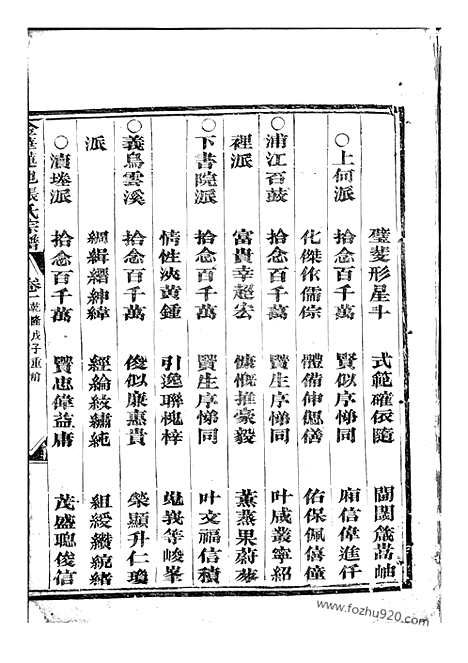 璧菱形星斗　式範確依隨　間閱幾嵩岫
○上何派　拾念百千萬　賢似序悌同　廟信偉進仟
化傑依儒宗　體備伸偲儀　佑保佩僖僮
○浦江百薮　拾念百千萬　賢生序悌同　叶成叢寧紹
裡派　富貴幸超宏　慷慨推豪毅　薰蒸果蔚蓁
○下書院派　拾念百千萬　賢生序悌同　叶文福信積
情性決黄鍾　引逸聯槐梓　嵬峩等峻峯
○義烏雲溪　拾念百千萬　俊似廉惠貴　榮顯升仁瓊
派　綢緝縉紳緯　經綸紋繡純　組綬纘統緒
○瀆塍派　拾念百千萬　賢忠偉益庸　茂盛聰俊信
金華蓮池張氏宗譜　卷一　乾隆戊子重脩
www.fozhu920.com